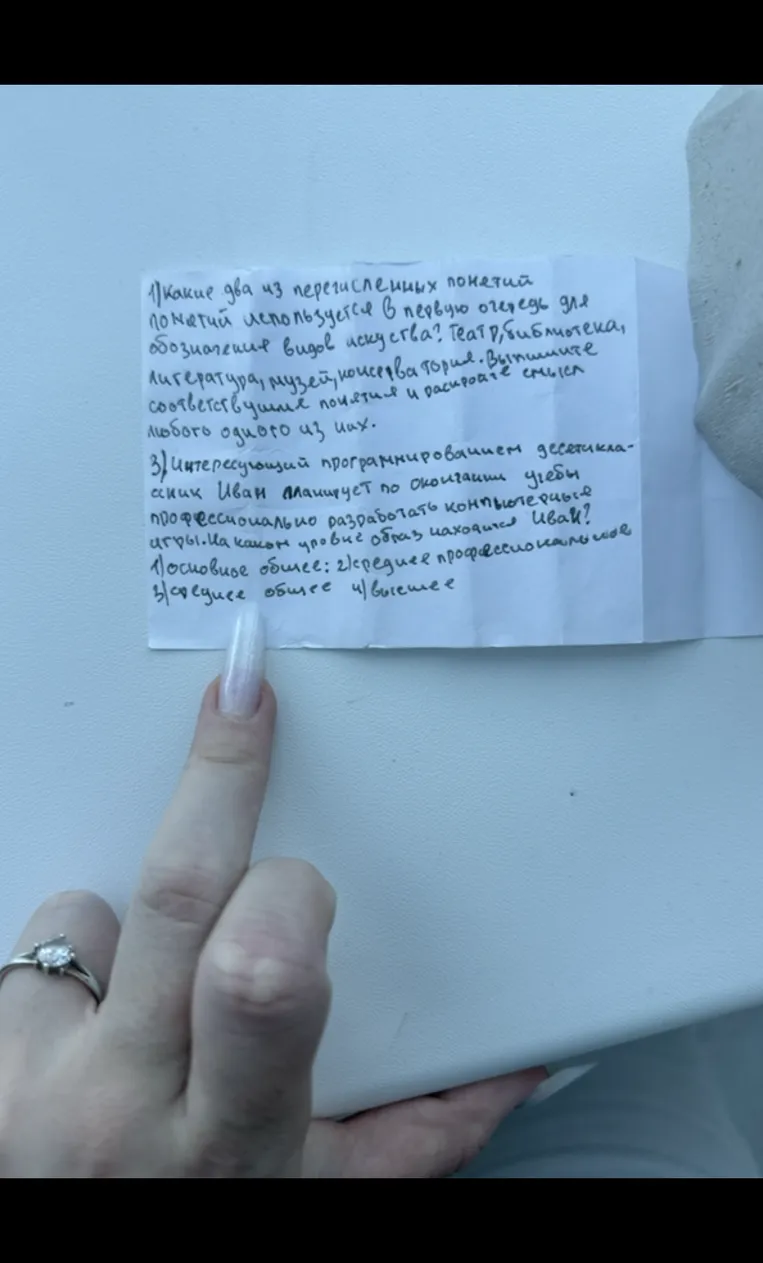 1) Какие два из перечисленных понетий
понетий используется в первую очередь для
обозначения видов искуства? Театр, библиотека,
литература, музей, консерватория. Выпишите
соответствущие понетия и раскройте смысл
любого одного из них.
3) Интересующий программированием десетикла-
ссник Иван планирует по окончании учебы
профессионально разработать компьютерные
игры. На каком уровне образ находится Иван?
1) основное общее: 2) среднее профессиональное
3) среднее общее 4) высшее